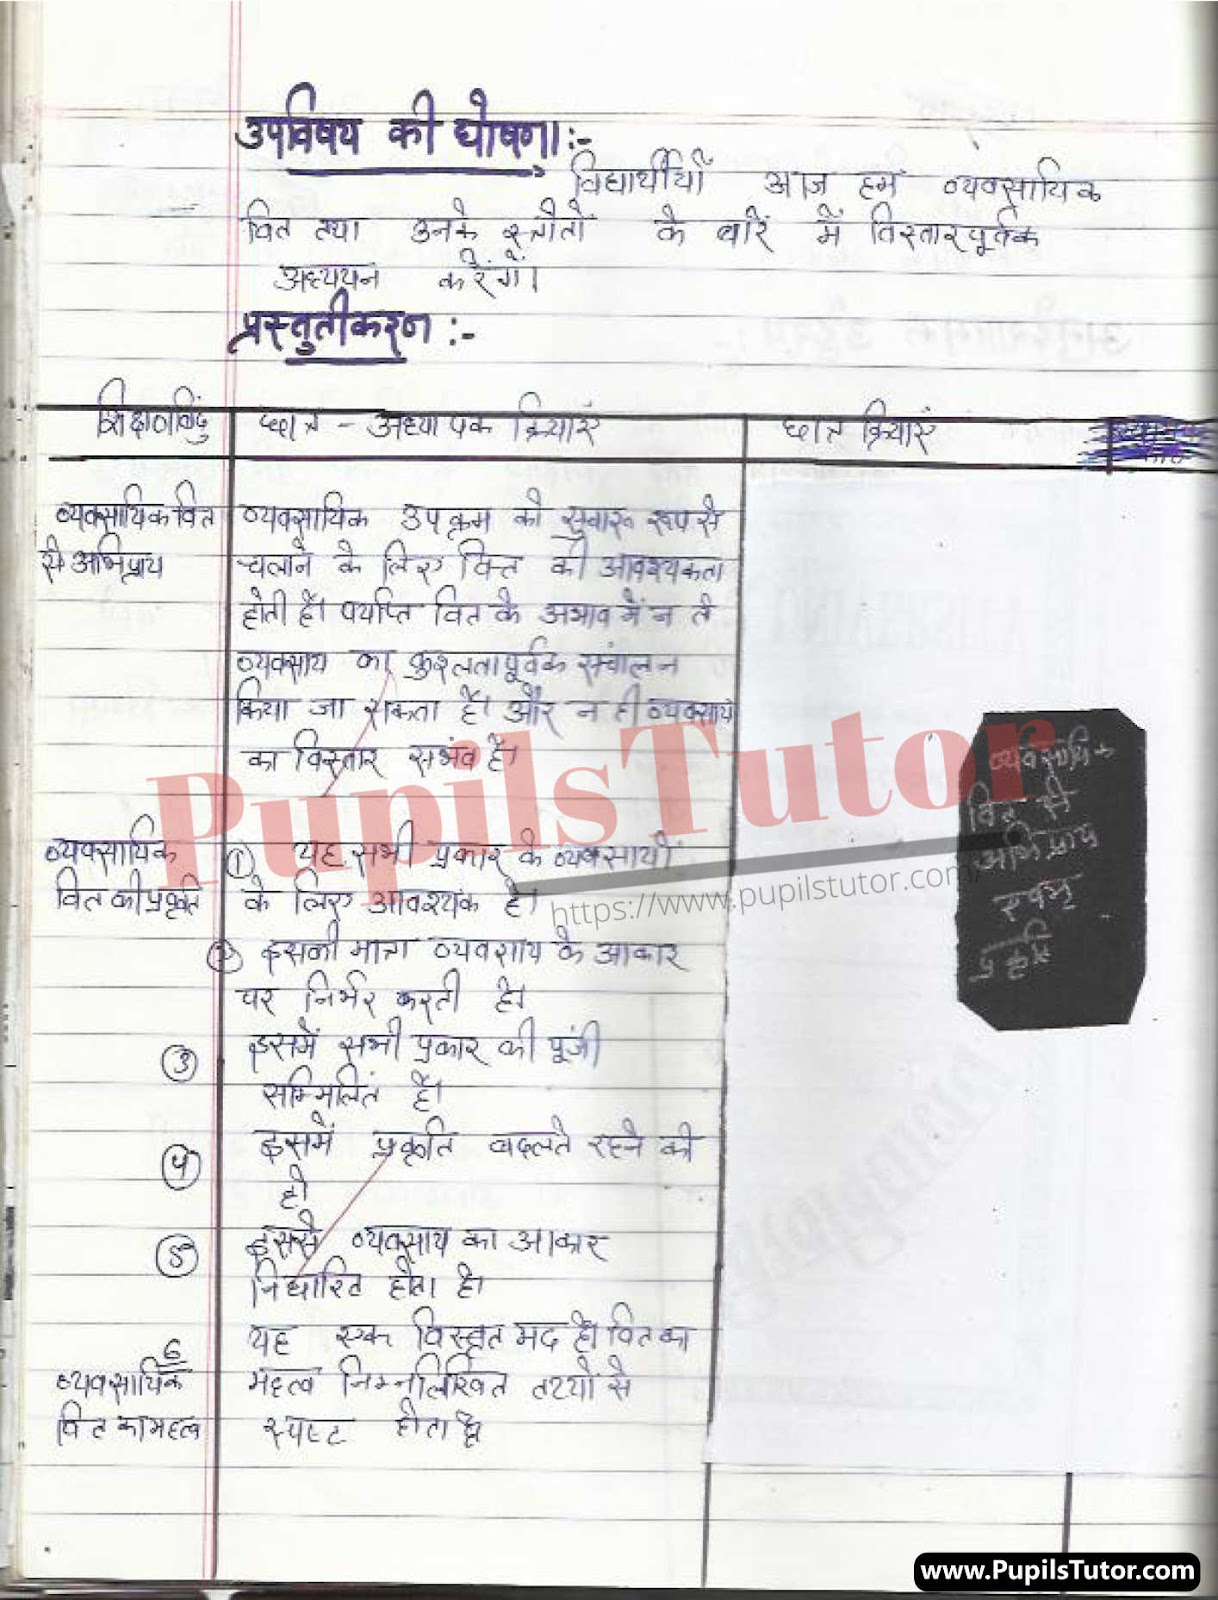 उपविषय की घोषणा:-
विद्यार्थीयों आज हम व्यवसायिक
वित तथा उनके स्त्रोतों के बारें में विस्तारपूर्वक
अध्ययन करेंगें।
प्रस्तुतीकरन :-
शिक्षणबिंदु छात्र - अध्यापक क्रियाएं छात्र क्रियाएं
व्यवसायिक वित
से अभिप्राय
व्यवसायिक उपक्रम को सुचारू रूप से
चलाने के लिए वित्त की आवश्यकता
होती है। पर्याप्त वित के अभाव में न तो
व्यवसाय का कुशलतापूर्वक संचालन
किया जा सकता है। और न ही व्यवसाय
का विस्तार संभव है।
PupilsTutor
https://www.pupilstutor.com/
व्यवसायिक
वित की प्रकृति
① यह सभी प्रकार के व्यवसायों
के लिए आवश्यक है।
② इसकी मात्रा व्यवसाय के आकार
पर निर्भर करती है।
③ इसमें सभी प्रकार की पूंजी
सम्मिलित है।
④ इसमें प्रकृति बदलते रहने की
हो
⑤ इससे व्यवसाय का आकार
निर्धारित होता है।
6 यह एक विस्तृत मद है। वित का
व्यवसायिक
वित का महत्व
महत्व निम्नलिखित तथ्यों से
स्पष्ट होता है
व्यवसायिक
वित से
अभिप्राय
प्रकृति
www.PupilsTutor.com